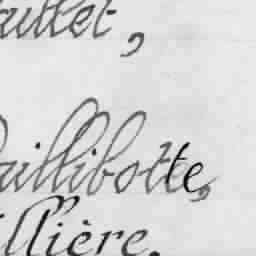 uillet,
uillibotte,
llière.